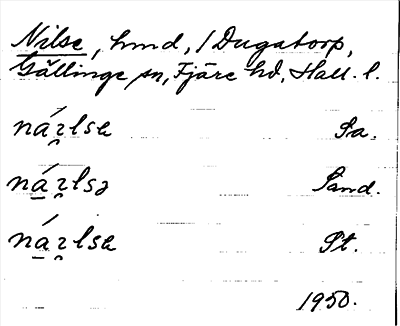 Nilse, hmd, / Dugatorp,
Gällinge sn, Fjäre hd, Hall. l.
Sa.
Sand.
St.
1950.